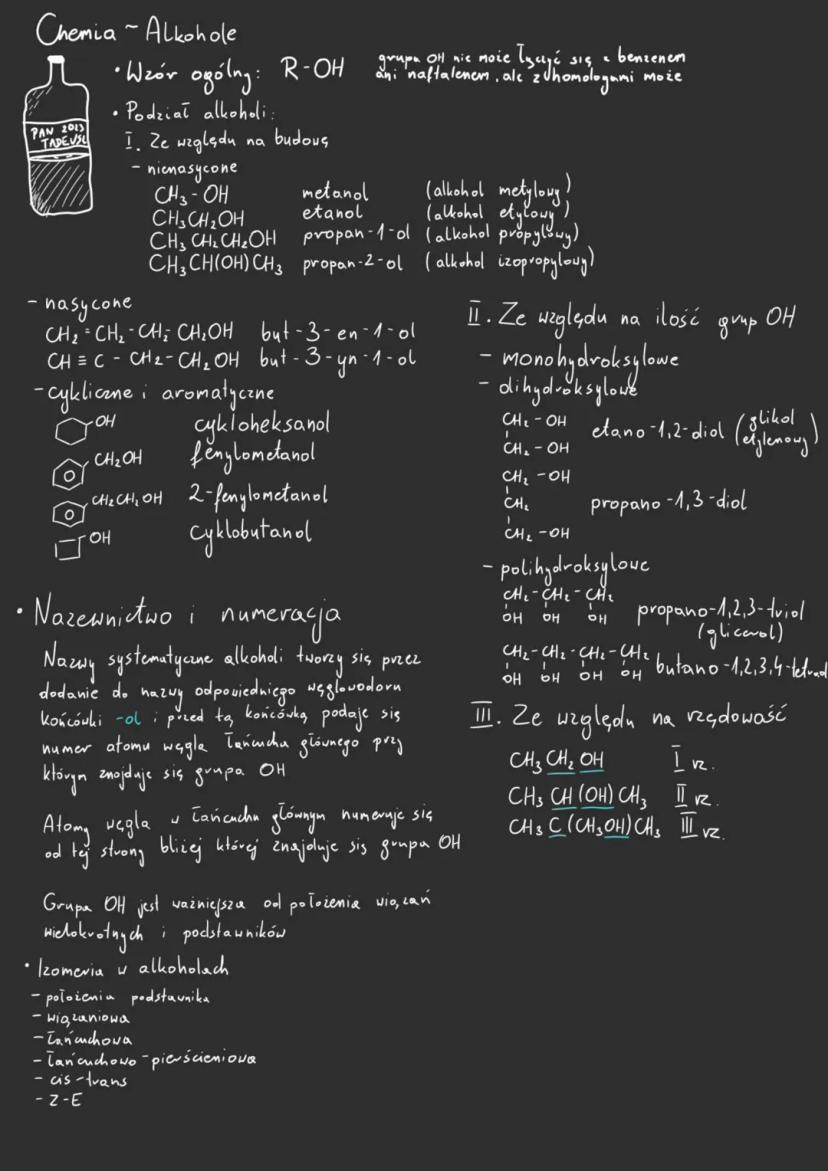 Chemia ~ Alkohole
PAN 2023
TADEUSZ
• Wzór ogólny: R-OH
grupa OH nie może łączyć się z benzenem
ani naftalenem, ale z homologami może
• Podział alkoholi:
I. Ze względu na budowę
- nienasycone
CH3 - OH metanol (alkohol metylowy)
CH3CH2OH etanol (alkohol etylowy)
CH3 CH2CH2OH propan-1-ol (alkohol propylowy)
CH3CH(OH)CH3 propan-2-ol (alkohol izopropylowy)
- nasycone
CH2=CH2-CH2-CH2OH but-3-en-1-ol
CH≡C-CH2-CH2OH but-3-yn-1-ol
- cykliczne i aromatyczne
OH cykloheksanol
CH2OH fenylometanol
CH2CH2OH 2-fenylometanol
OH cyklobutanol
II. Ze względu na ilość grup OH
- monohydroksylowe
- dihydroksylowe
CH2-OH
CH2-OH
etano-1,2-diol (glikol
etylenowy)
CH2-OH
CH2
CH2-OH
propano-1,3-diol
- polihydroksylowe
CH2-CH2-CH2
OH OH OH
propano-1,2,3-triol
(glicerol)
CH2-CH2-CH2-CH2
OH OH OH OH
butano-1,2,3,4-tetraol
III. Ze względu na rzędowość
CH3CH2OH I rz.
CH3CH(OH)CH3 II rz.
CH3C(CH3OH)CH3 III rz.
• Nazewnictwo i numeracja
Nazwy systematyczne alkoholi tworzy się przez
dodanie do nazwy odpowiedniego węglowodoru
końcówki -ol i przed tą końcówką podaje się
numer atomu węgla łańcucha głównego przy
którym znajduje się grupa OH
Atomy węgla w łańcuchu głównym numeruje się
od tej strony bliżej której znajduje się grupa OH
Grupa OH jest ważniejsza od położenia wiązań
wielokrotnych i podstawników
• Izomeria w alkoholach
- położenia podstawnika
- wiązaniowa
- łańcuchowa
- łańcuchowo-pierścieniowa
- cis-trans
- Z-E